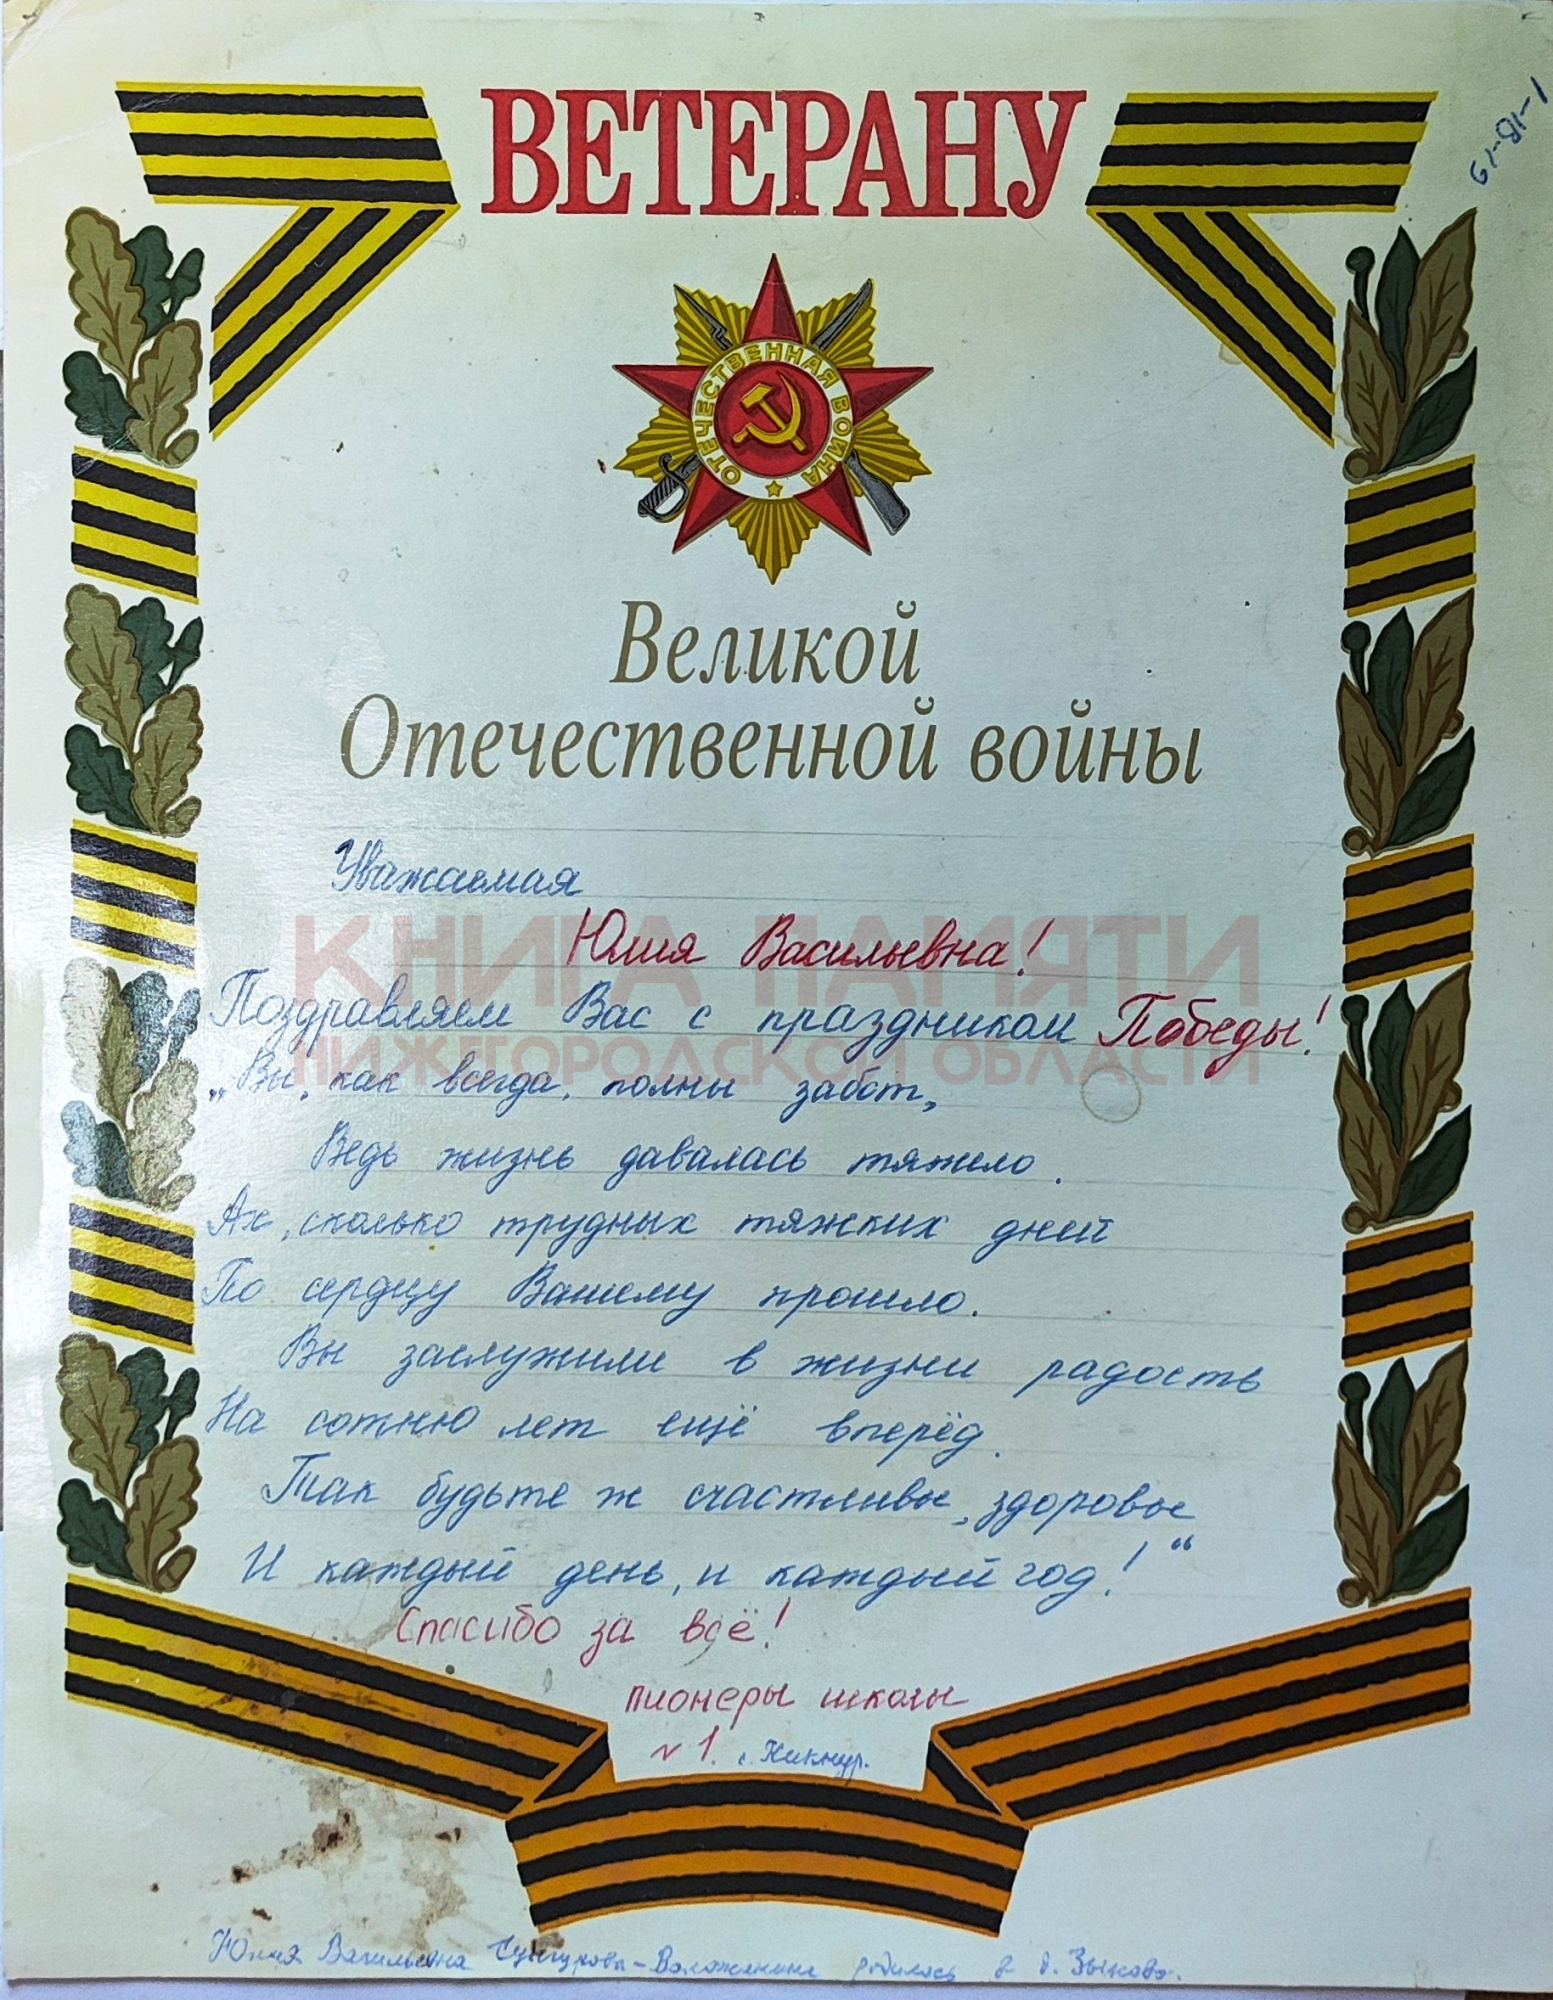 ВЕТЕРАНУ
61-81-1
ОТЕЧЕСТВЕННАЯ ВОЙНА
Великой
Отечественной войны
Уважаемая
Юлия Васильевна!
КНИГА ПАМЯТИ
Поздравляем Вас с праздником Победы!
НИЖЕГОРОДСКОЙ ОБЛАСТИ
„Вы, как всегда, полны забот,
Ведь жизнь давалась тяжело.
Ах, сколько трудных тяжких дней
По сердцу Вашему прошло.
Вы заслужили в жизни радость
На сотню лет ещё вперёд.
Так будьте ж счастливы, здоровы
И каждый день, и каждый год!“
Спасибо за всё!
пионеры школы
№ 1. с. Кикнур.
Юлия Васильевна родилась в д. Зыково.